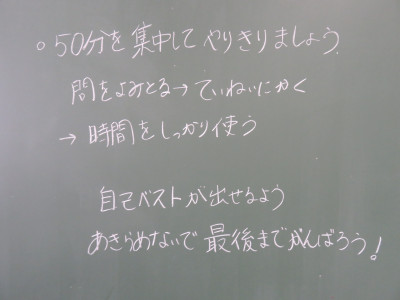 ○ 50分を集中してやりきりましょう
問をよみとる→ていねいにかく
→ 時間をしっかり使う
自己ベストが出せるよう
あきらめないで最後までがんばろう!